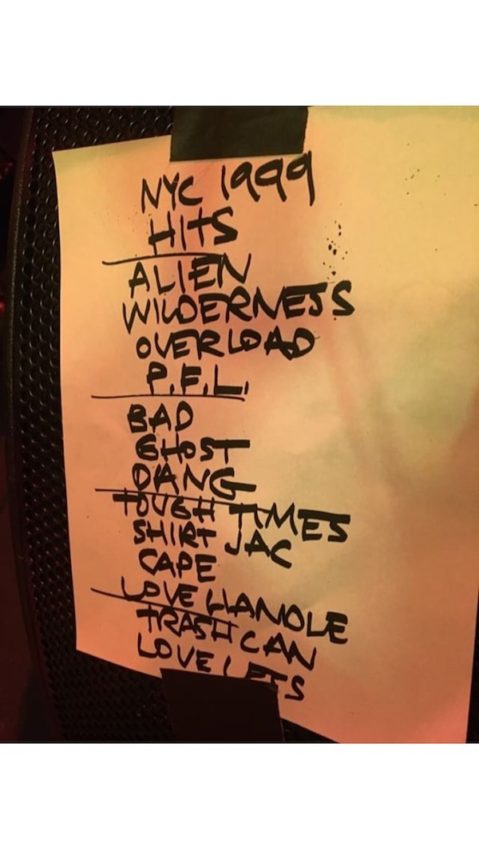 NYC 1999
HITS
ALIEN
WILDERNESS
OVERLOAD
P.F.L.
BAD
GHOST
DANG
TOUGH TIMES
SHIRT JAC
CAPE
LOVE HANDLE
TRASH CAN
LOVE LETS